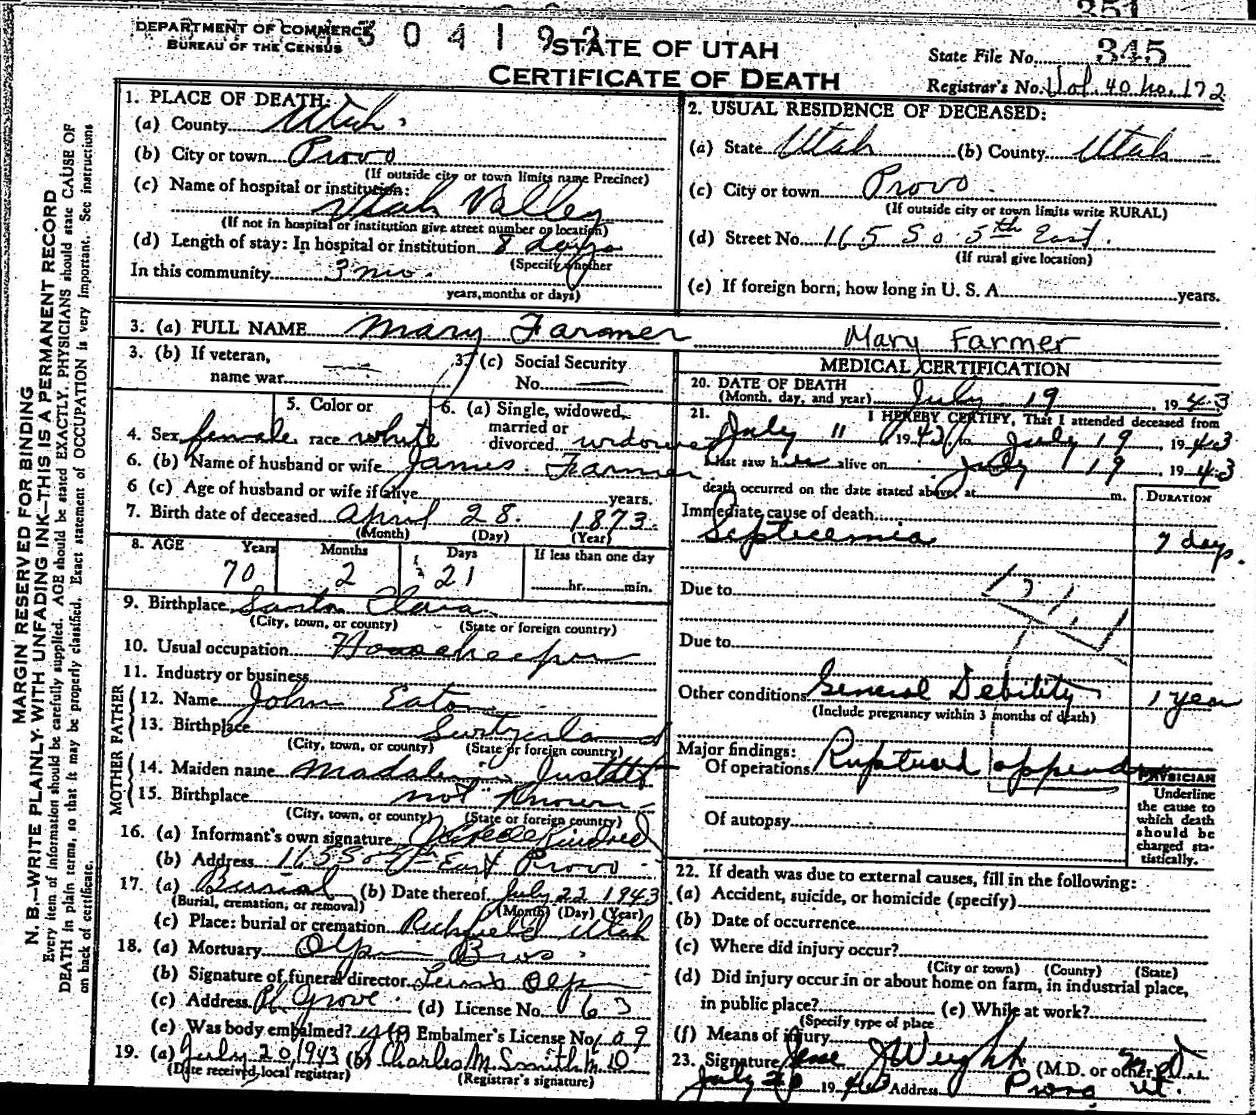 351
DEPARTMENT OF COMMERCE
BUREAU OF THE CENSUS
504192
STATE OF UTAH
CERTIFICATE OF DEATH
State File No. 345
Registrar's No. Vol. 40 No. 172
MARGIN RESERVED FOR BINDING
N. B.—WRITE PLAINLY WITH UNFADING INK—THIS IS A PERMANENT RECORD
Every item of information should be carefully supplied. AGE should be stated EXACTLY. PHYSICIANS should state CAUSE OF
DEATH in plain terms, so that it may be properly classified. Exact statement of OCCUPATION is very important. See instructions
on back of certificate.
1. PLACE OF DEATH:
(a) County Utah
(b) City or town Provo
(If outside city or town limits name Precinct)
(c) Name of hospital or institution:
Utah Valley
(If not in hospital or institution give street number or location)
(d) Length of stay: In hospital or institution 8 days
(Specify whether
In this community 3 mo.
years, months or days)
2. USUAL RESIDENCE OF DECEASED:
(a) State Utah (b) County Utah
(c) City or town Provo
(If outside city or town limits write RURAL)
(d) Street No. 165 So. 5th East.
(If rural give location)
(e) If foreign born, how long in U. S. A. years.
3. (a) FULL NAME Mary Farmer Mary Farmer
3. (b) If veteran,
name war
3. (c) Social Security
No.
4. Sex female
5. Color or
race white
6. (a) Single, widowed,
married or
divorced widowed
6. (b) Name of husband or wife James Farmer
6 (c) Age of husband or wife if alive years.
7. Birth date of deceased April 28. 1873.
(Month) (Day) (Year)
8. AGE Years Months Days If less than one day
70 2 21 hr. min.
9. Birthplace Santa Clara
(City, town, or county) (State or foreign country)
10. Usual occupation Housekeeper
11. Industry or business
FATHER
12. Name John Eaton
13. Birthplace Switzerland
(City, town, or county) (State or foreign country)
MOTHER
14. Maiden name
15. Birthplace not known
(City, town, or county) (State or foreign country)
16. (a) Informant's own signature Kindred
(b) Address 165 So. 5th East Provo
17. (a) Burrial (b) Date thereof July 22 1943
(Burial, cremation, or removal) (Month) (Day) (Year)
(c) Place: burial or cremation Richfield Utah
18. (a) Mortuary Olpin Bros.
(b) Signature of funeral director Lewis Olpin
(c) Address Pl Grove. (d) License No. 63
(e) Was body embalmed? yes Embalmer's License No. 109
19. (a) July 20, 1943 (b) Charles M. Smith M. D
(Date received, local registrar) (Registrar's signature)
MEDICAL CERTIFICATION
20. DATE OF DEATH
(Month, day, and year) July 19, 1943
21. I HEREBY CERTIFY, That I attended deceased from
July 11 1943, to July 19, 1943
Last saw her alive on July 19, 1943
death occurred on the date stated above, at m.
DURATION
Immediate cause of death
Septicemia 7 days.
Due to
Due to
Other conditions General Debility 1 year
(Include pregnancy within 3 months of death)
Major findings:
Of operations Ruptured appendix
Of autopsy
PHYSICIAN
Underline
the cause to
which death
should be
charged sta-
tistically.
22. If death was due to external causes, fill in the following:
(a) Accident, suicide, or homicide (specify)
(b) Date of occurrence
(c) Where did injury occur?
(City or town) (County) (State)
(d) Did injury occur in or about home on farm, in industrial place,
in public place? (e) While at work?
(Specify type of place
(f) Means of injury
23. Signature Jesse J Weight (M.D. or other) M.D.
July 20 1943 Address Provo Ut.